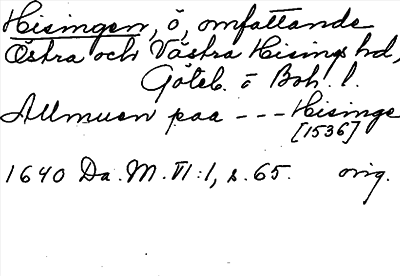 Hisingen, ö, omfattande
Östra och Västra Hisings hd,
Göteb. o Boh. l.
Allmuen paa --- Hisinge
[1536]
1640 Da. M. VI:1, s. 65. orig.